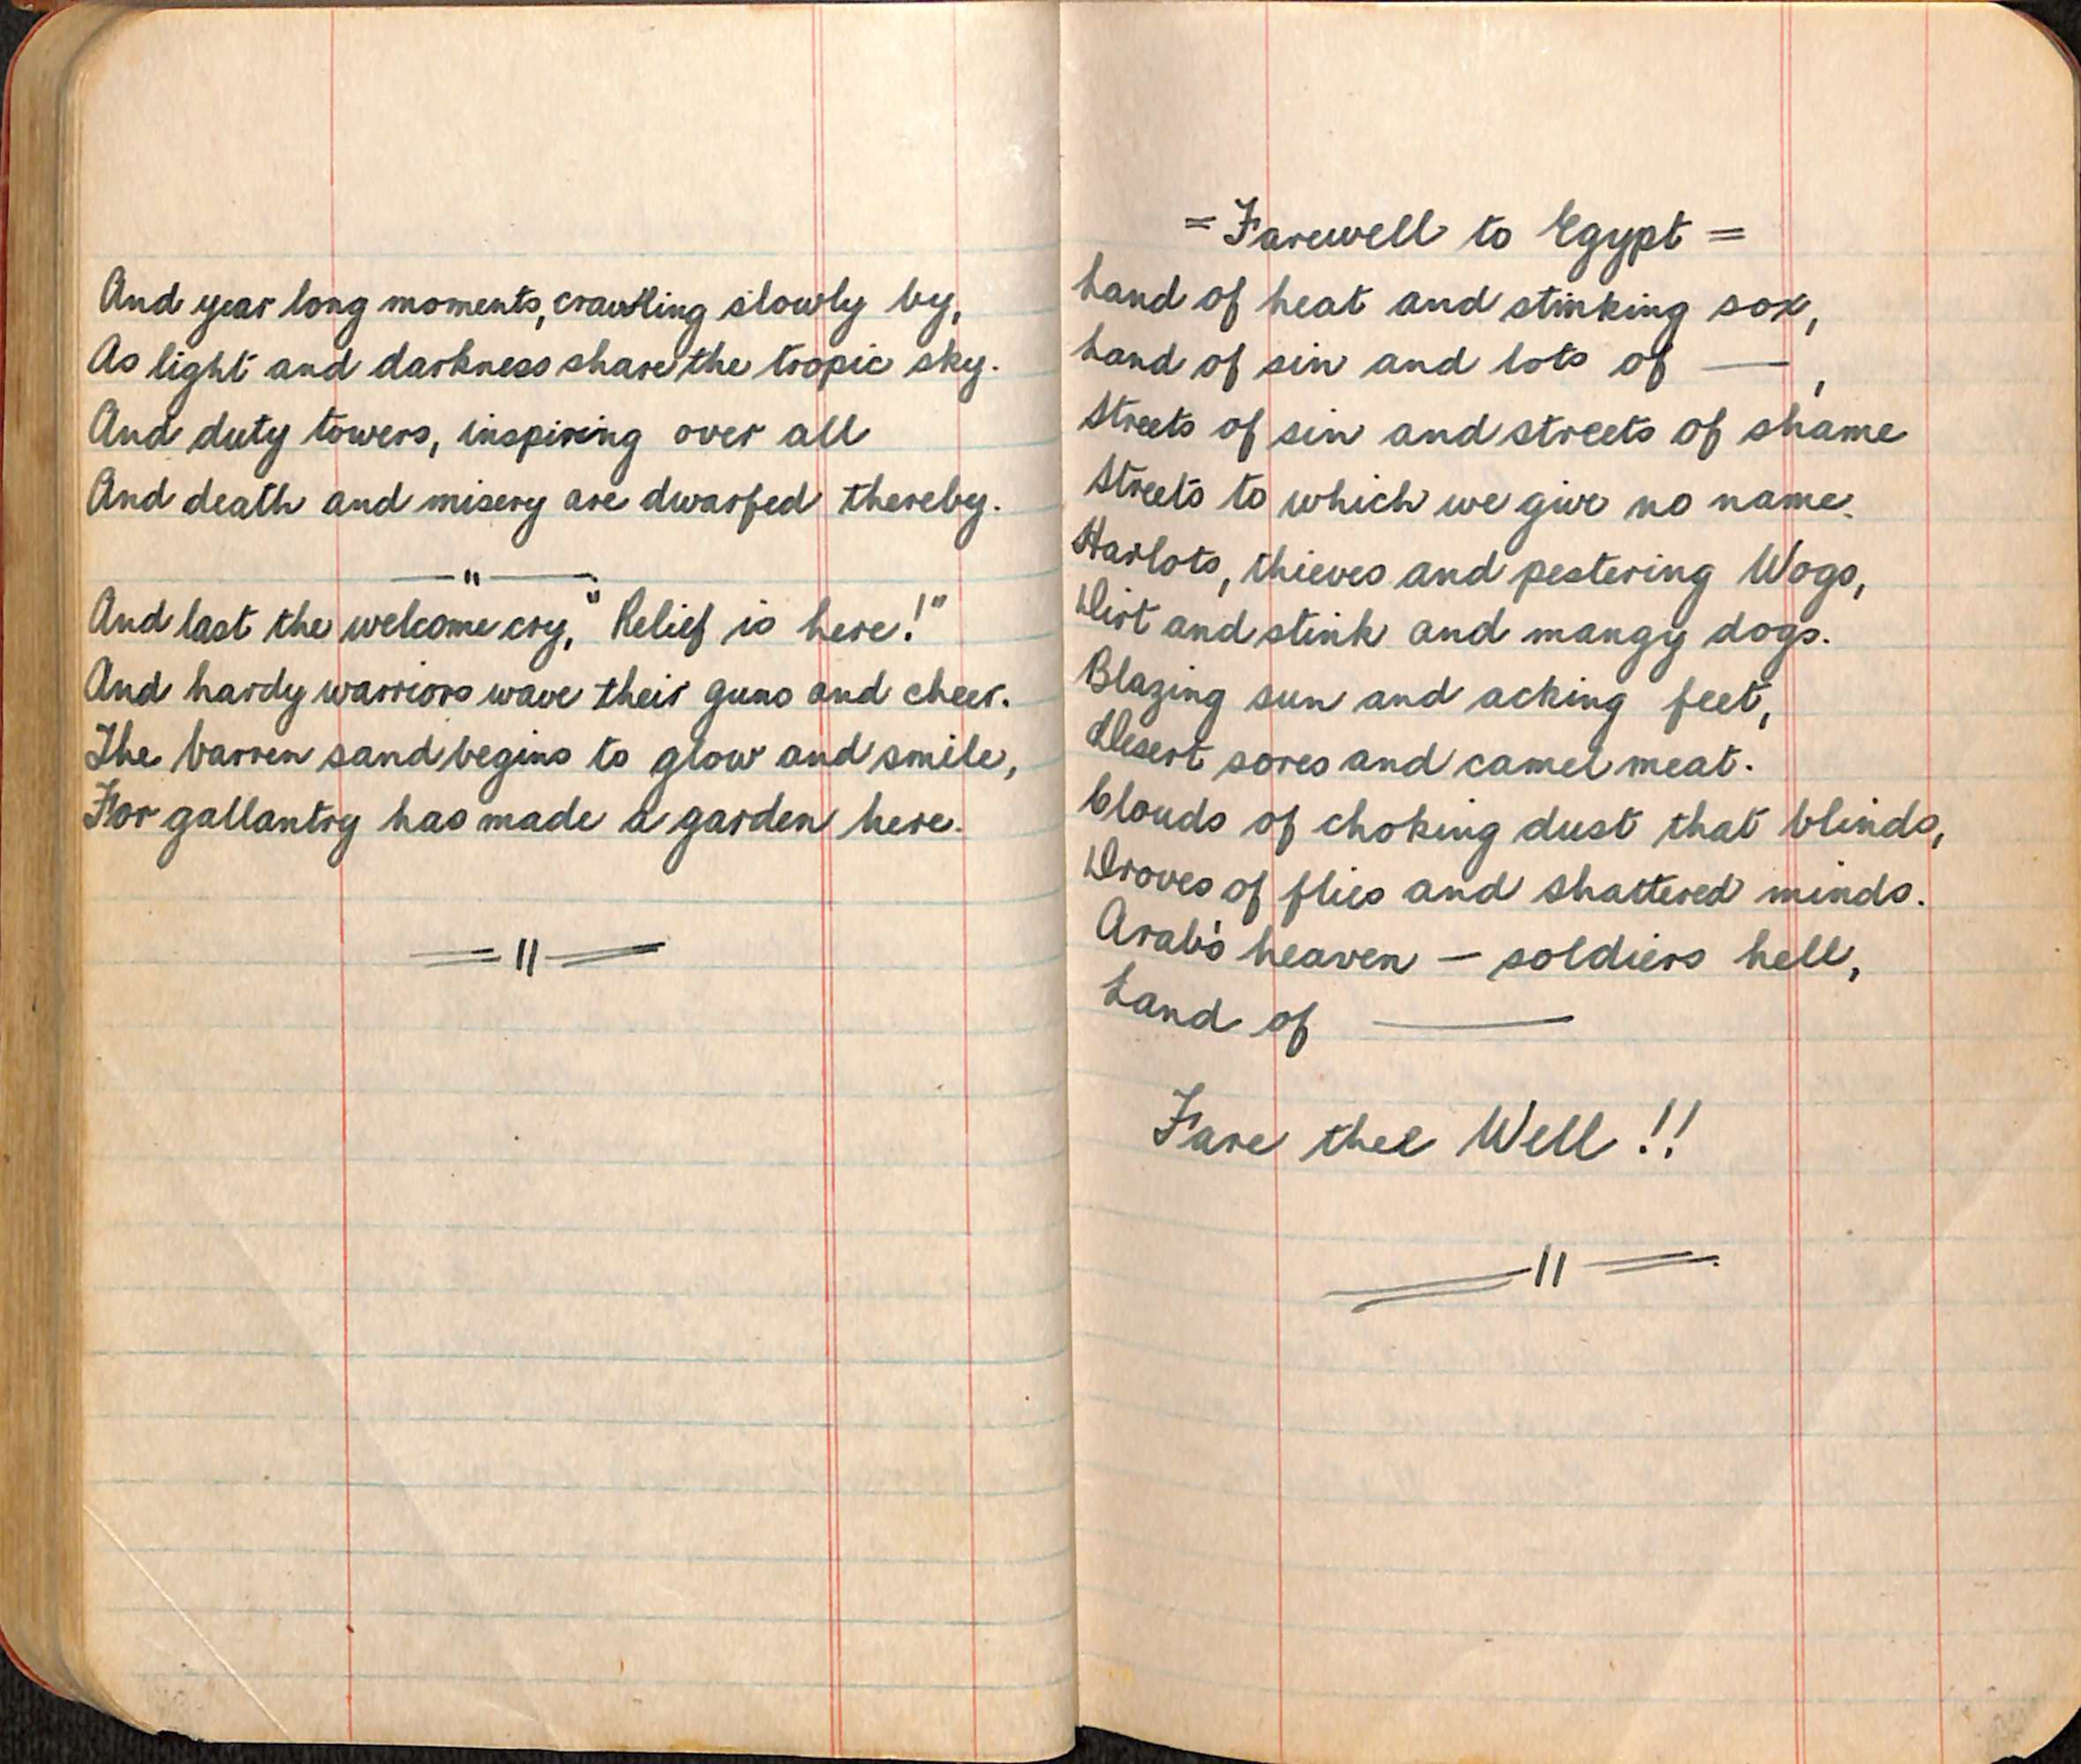 And year long moments, crawling slowly by,
As light and darkness share the tropic sky.
And duty towers, inspiring over all
And death and misery are dwarfed thereby.
— " —
And last the welcome cry, "Relief is here!"
And hardy warriors wave their guns and cheer.
The barren sand begins to glow and smile,
For gallantry has made a garden here.
= Farewell to Egypt =
Land of heat and stinking sox,
Land of sin and lots of —— ,
Streets of sin and streets of shame
Streets to which we give no name.
Harlots, thieves and pestering Wogs,
Dirt and stink and mangy dogs.
Blazing sun and acking feet,
Desert sores and camel meat.
Clouds of choking dust that blinds,
Droves of flies and shattered minds.
Arab's heaven — soldiers hell,
Land of ————
Fare thee Well !!